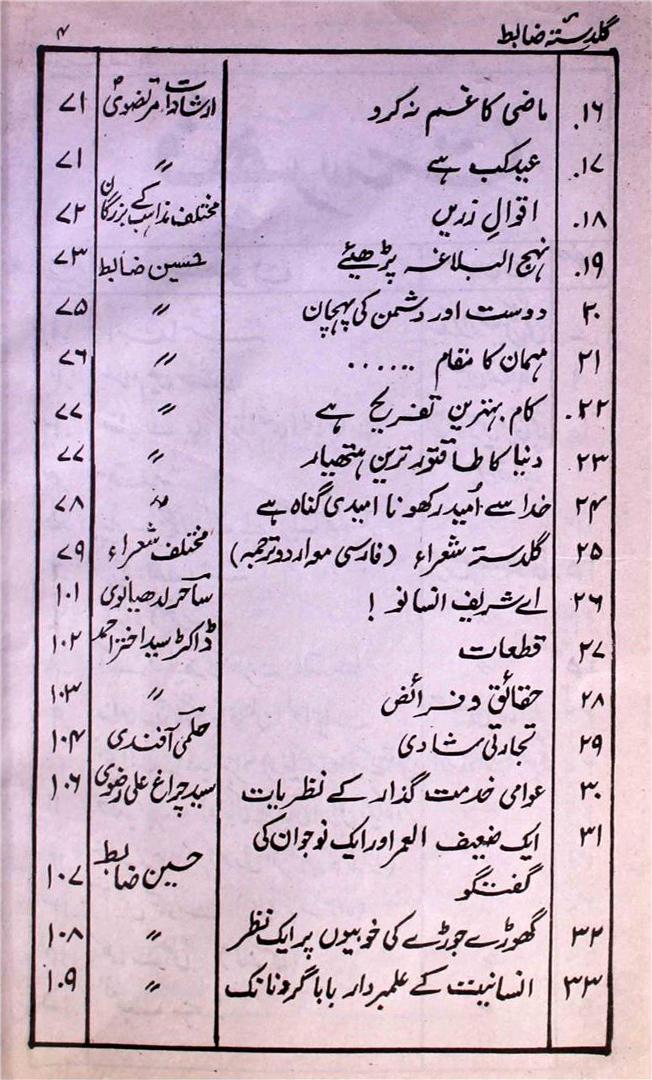 گلدستۂ ضابط ۴
۱۶. ماضی کا غم نہ کرو ارشادات مرتضویؑ ۷۱
۱۷. عید کب ہے 〃 ۷۱
۱۸. اقوالِ زریں مختلف مذاہب کے بزرگان ۷۲
۱۹. نہج البلاغہ پڑھیئے حسین ضابط ۷۳
۲۰ دوست اور دشمن کی پہچان 〃 ۷۵
۲۱ مہمان کا مقام ...... 〃 ۷۶
۲۲. کام بہترین تفریح ہے 〃 ۷۷
۲۳ دنیا کا طاقتور ترین ہتھیار 〃 ۷۷
۲۴ خدا سے اُمید رکھو نا امیدی گناہ ہے 〃 ۷۸
۲۵ گلدستہ شعراء (فارسی مع اردو ترجمہ) مختلف شعراء ۷۹
۲۶ اے شریف انسانو ! ساحر لدھیانوی ۱۰۱
۲۷ قطعات ڈاکٹر سید اختر احمد ۱۰۲
۲۸ حقائق و فرائض 〃 ۱۰۳
۲۹ تجارتی شادی حلمی آفندی ۱۰۴
۳۰ عوامی خدمت گذار کے نظریات سید چراغ علی رضوی ۱۰۶
۳۱ ایک ضعیف العمر اور ایک نوجوان کی
گفتگو حسین ضابط ۱۰۷
۳۲ گھوڑے جوڑے کی خوبیوں پر ایک نظر 〃 ۱۰۸
۳۳ انسانیت کے علمبردار بابا گرونانک 〃 ۱۰۹